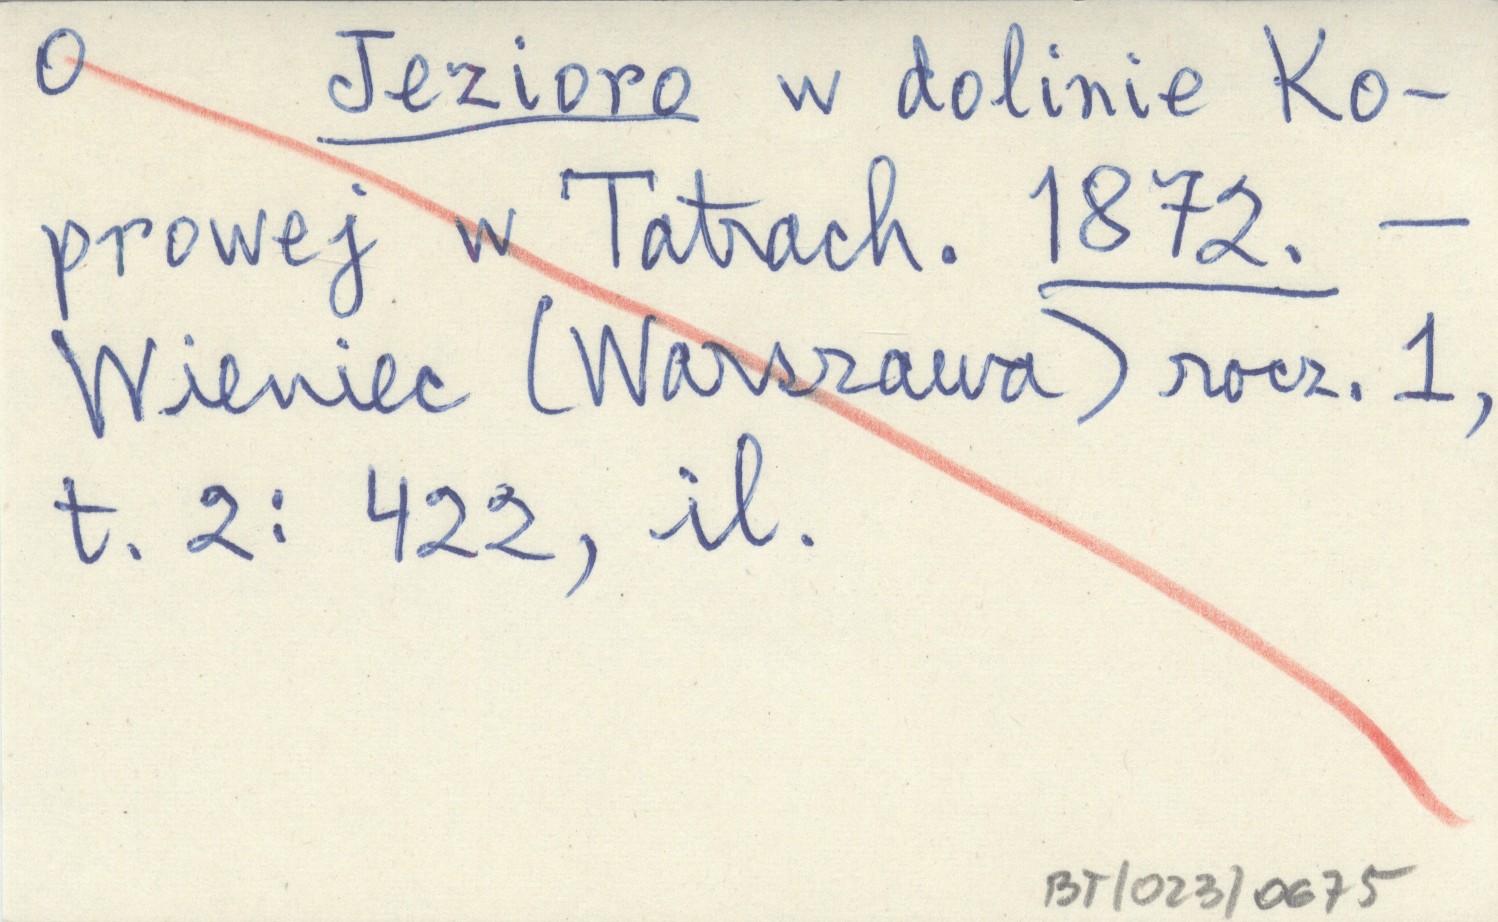 O Jezioro w dolinie Ko-
prowej w Tatrach. 1872. —
Wieniec (Warszawa) rocz. 1,
t. 2: 422, il.
BT/023/0675